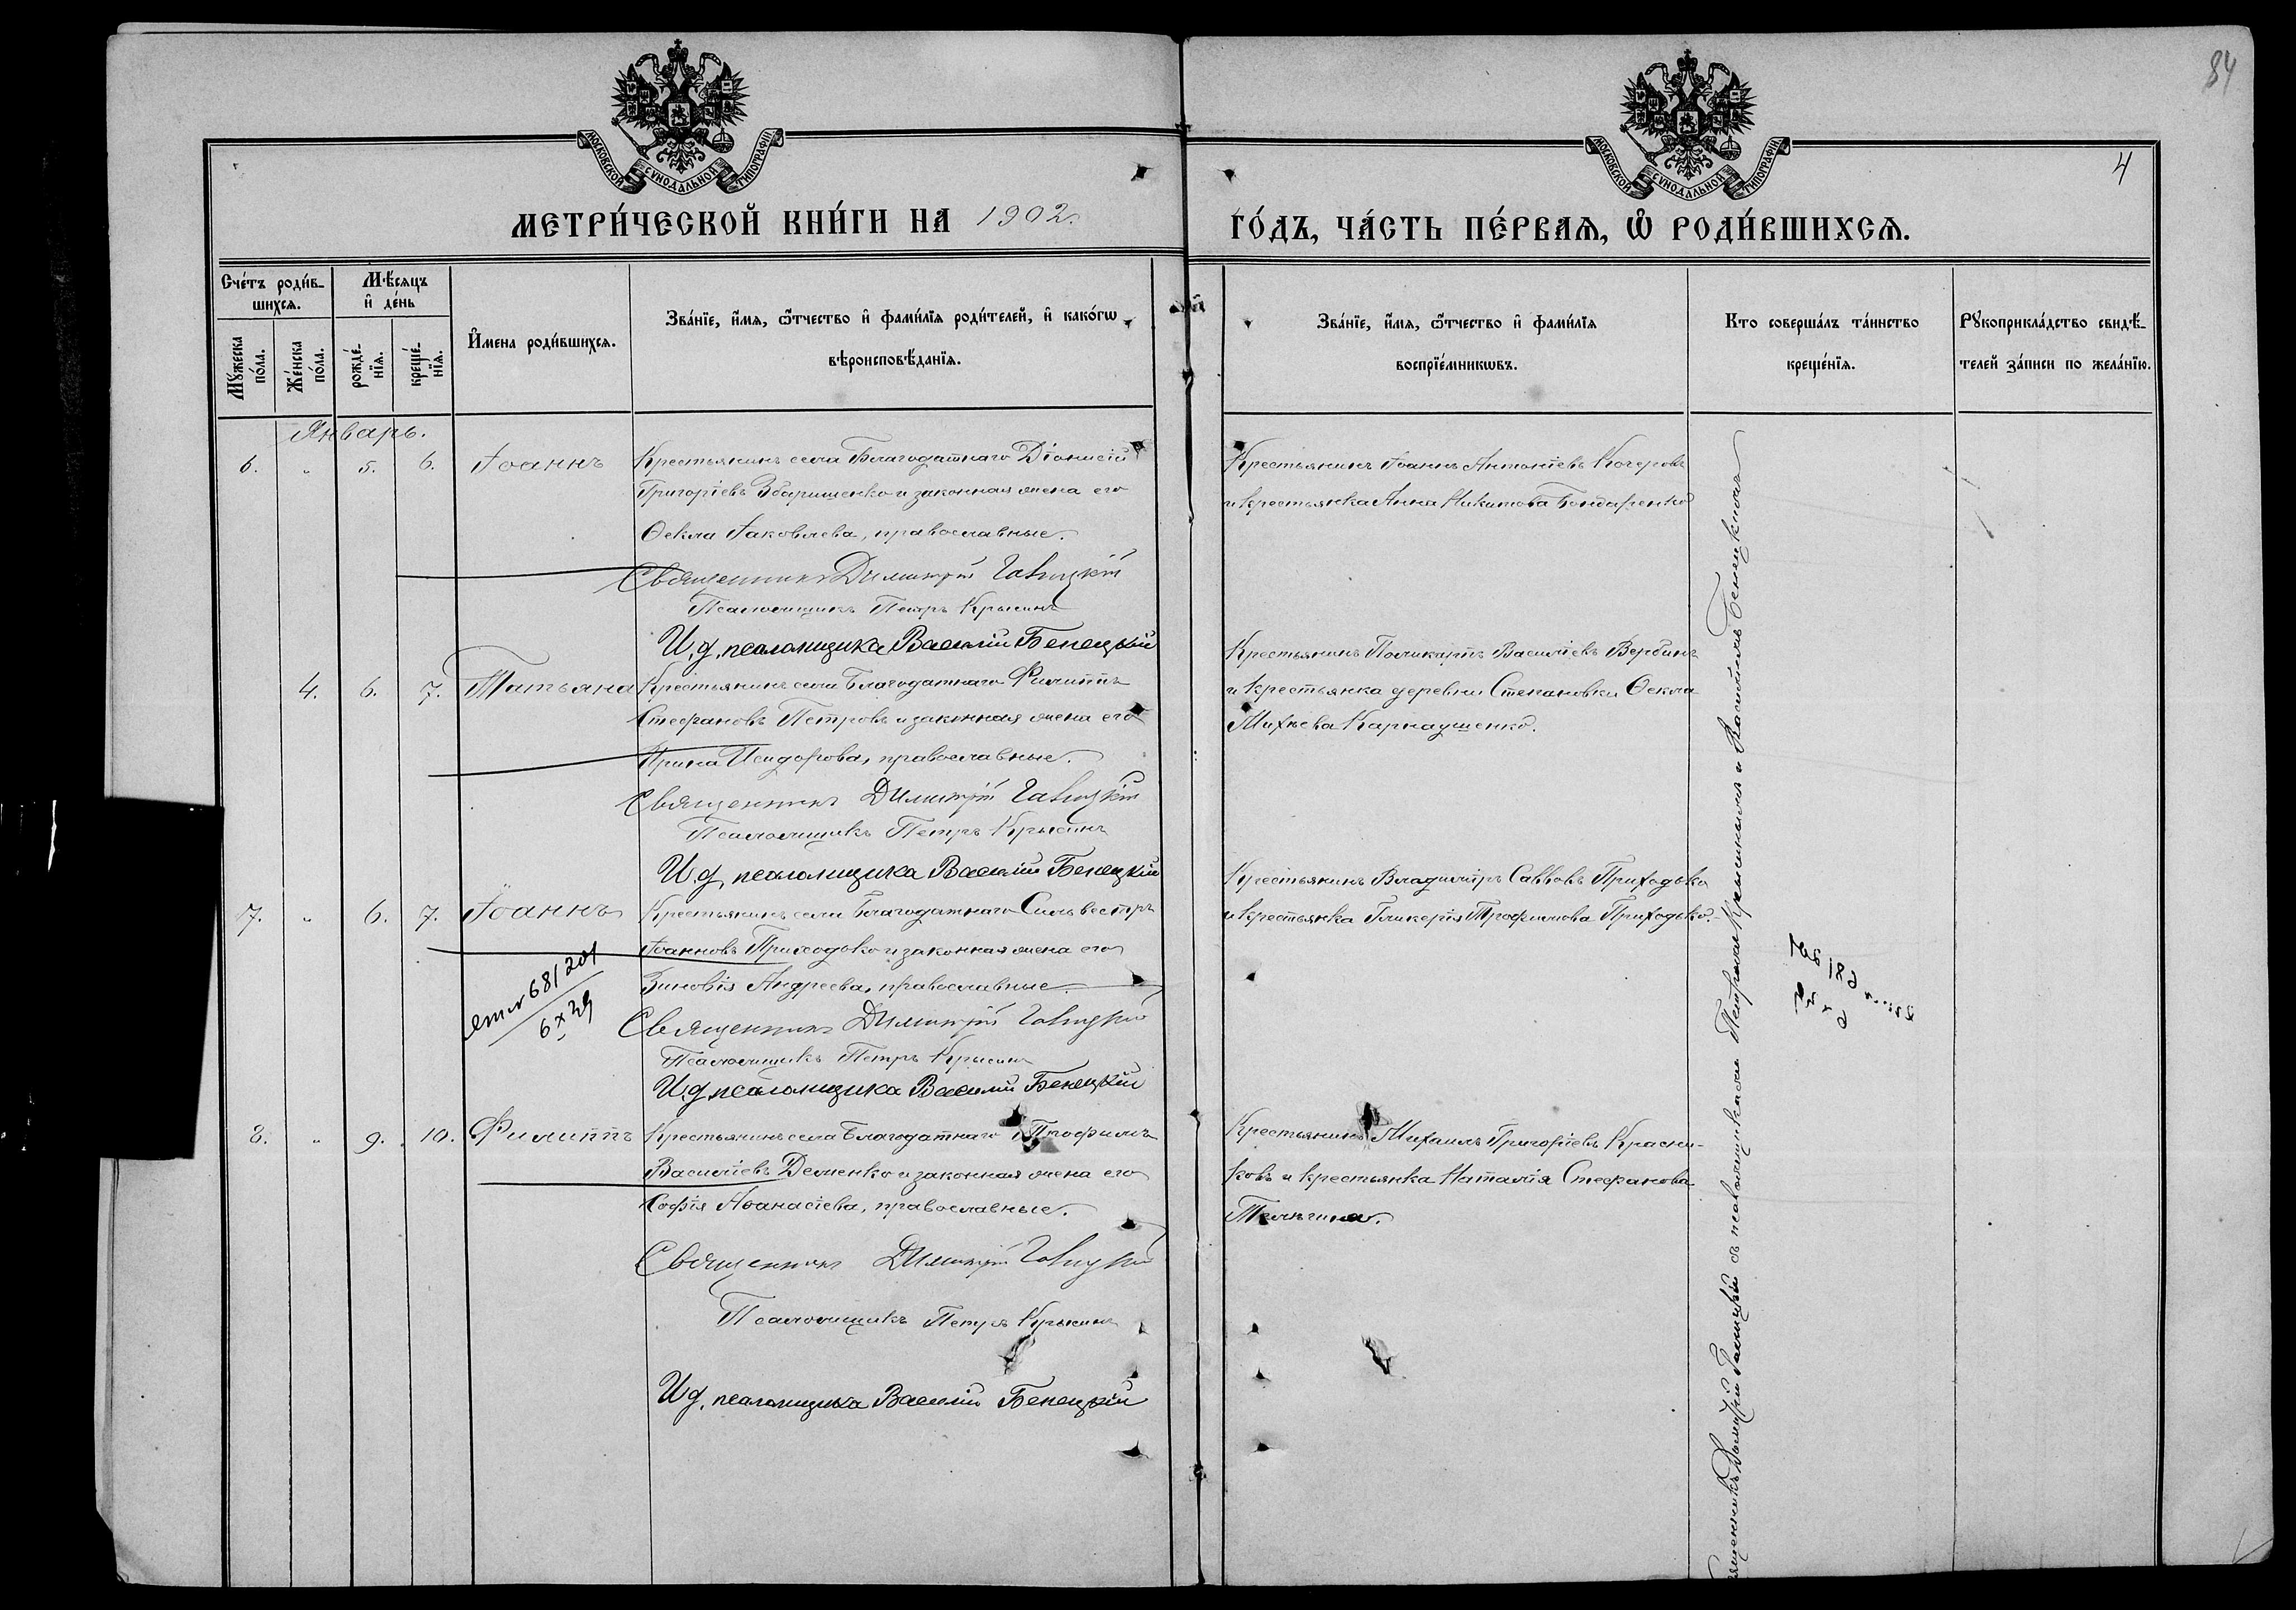 84
4
МОСКОВСКОЙ СУНОДАЛЬНОЙ ТИПОГРАФІИ
МОСКОВСКОЙ СУНОДАЛЬНОЙ ТИПОГРАФІИ
МЕТРИ́ЧЕСКОЙ КНИ́ГИ НА 1902.
ГО́ДЪ, ЧА́СТЬ ПЕ́РВАЯ, Ѡ РОДИ́ВШИХСЯ.
Сче́тъ роди́в-
шихся.
Мꙋ́жеска по́ла.
Же́нска по́ла.
Мѣ́сяцъ и де́нь
рожде́-нїя.
креще́-нїя.
И́мена роди́вшихся.
Зва́нїе, и́мя, ѻ́тчество и фами́лїя роди́телей, и како́гѡ
вѣроисповѣ́данїя.
Зва́нїе, и́мя, ѻ́тчество и фами́лїя
воспрїе́мникѡвъ.
Кто соверша́лъ та́инство
креще́нїя.
Рꙋкоприкла́дство свидѣ́-
телей за́писи по жела́нїю.
Январь.
6. " 5. 6. Іоаннъ
Крестьянинъ села Благодатнаго Діонисій
Григоріевъ Збарищенко и законная жена его
Ѳекла Іаковлева, православные.
Священникъ Димитрій Галицкій
Псаломщикъ Петръ Крысинъ
И. д. псаломщика Василій Бенецкій
Крестьянинъ Іоаннъ Антоніевъ Кочеровъ
и крестьянка Анна Никитова Бондаренко
4. 6. 7. Татьяна
Крестьянинъ села Благодатнаго Филиппъ
Стефановъ Петровъ и законная жена его
Ирина Исидорова, православные.
Священникъ Димитрій Галицкій
Псаломщикъ Петръ Крысинъ
И. д. псаломщика Василій Бенецкій
Крестьянинъ Поликарпъ Василіевъ Вербинъ
и крестьянка деревни Степановки Ѳекла
Михѣева Карнаушенко.
7. " 6. 7. Іоаннъ
Крестьянинъ села Благодатнаго Сильвестръ
Іоанновъ Приходько и законная жена его
Зиновія Андреева, православные
Священникъ Димитрій Галицкій
Псаломщикъ Петръ Крысинъ
И. д. псаломщика Василій Бенецкій
681 201
6 x 29
Крестьянинъ Владиміръ Саввовъ Приходько
и крестьянка Гликерія Трофимова Приходько.
8. " 9. 10. Филиппъ
Крестьянинъ села Благодатнаго Трофимъ
Василіевъ Деменко и законная жена его
Софія Аѳанасіева, православные.
Священникъ Димитрій Галицкій
Псаломщикъ Петръ Крысинъ
И. д. псаломщика Василій Бенецкій
Крестьянинъ Михаилъ Григоріевъ Красни-
ковъ и крестьянка Наталія Стефанова
Священникъ Димитрій Галицкій съ псаломщиками Петромъ Крысинымъ и Василіемъ Бенецкимъ